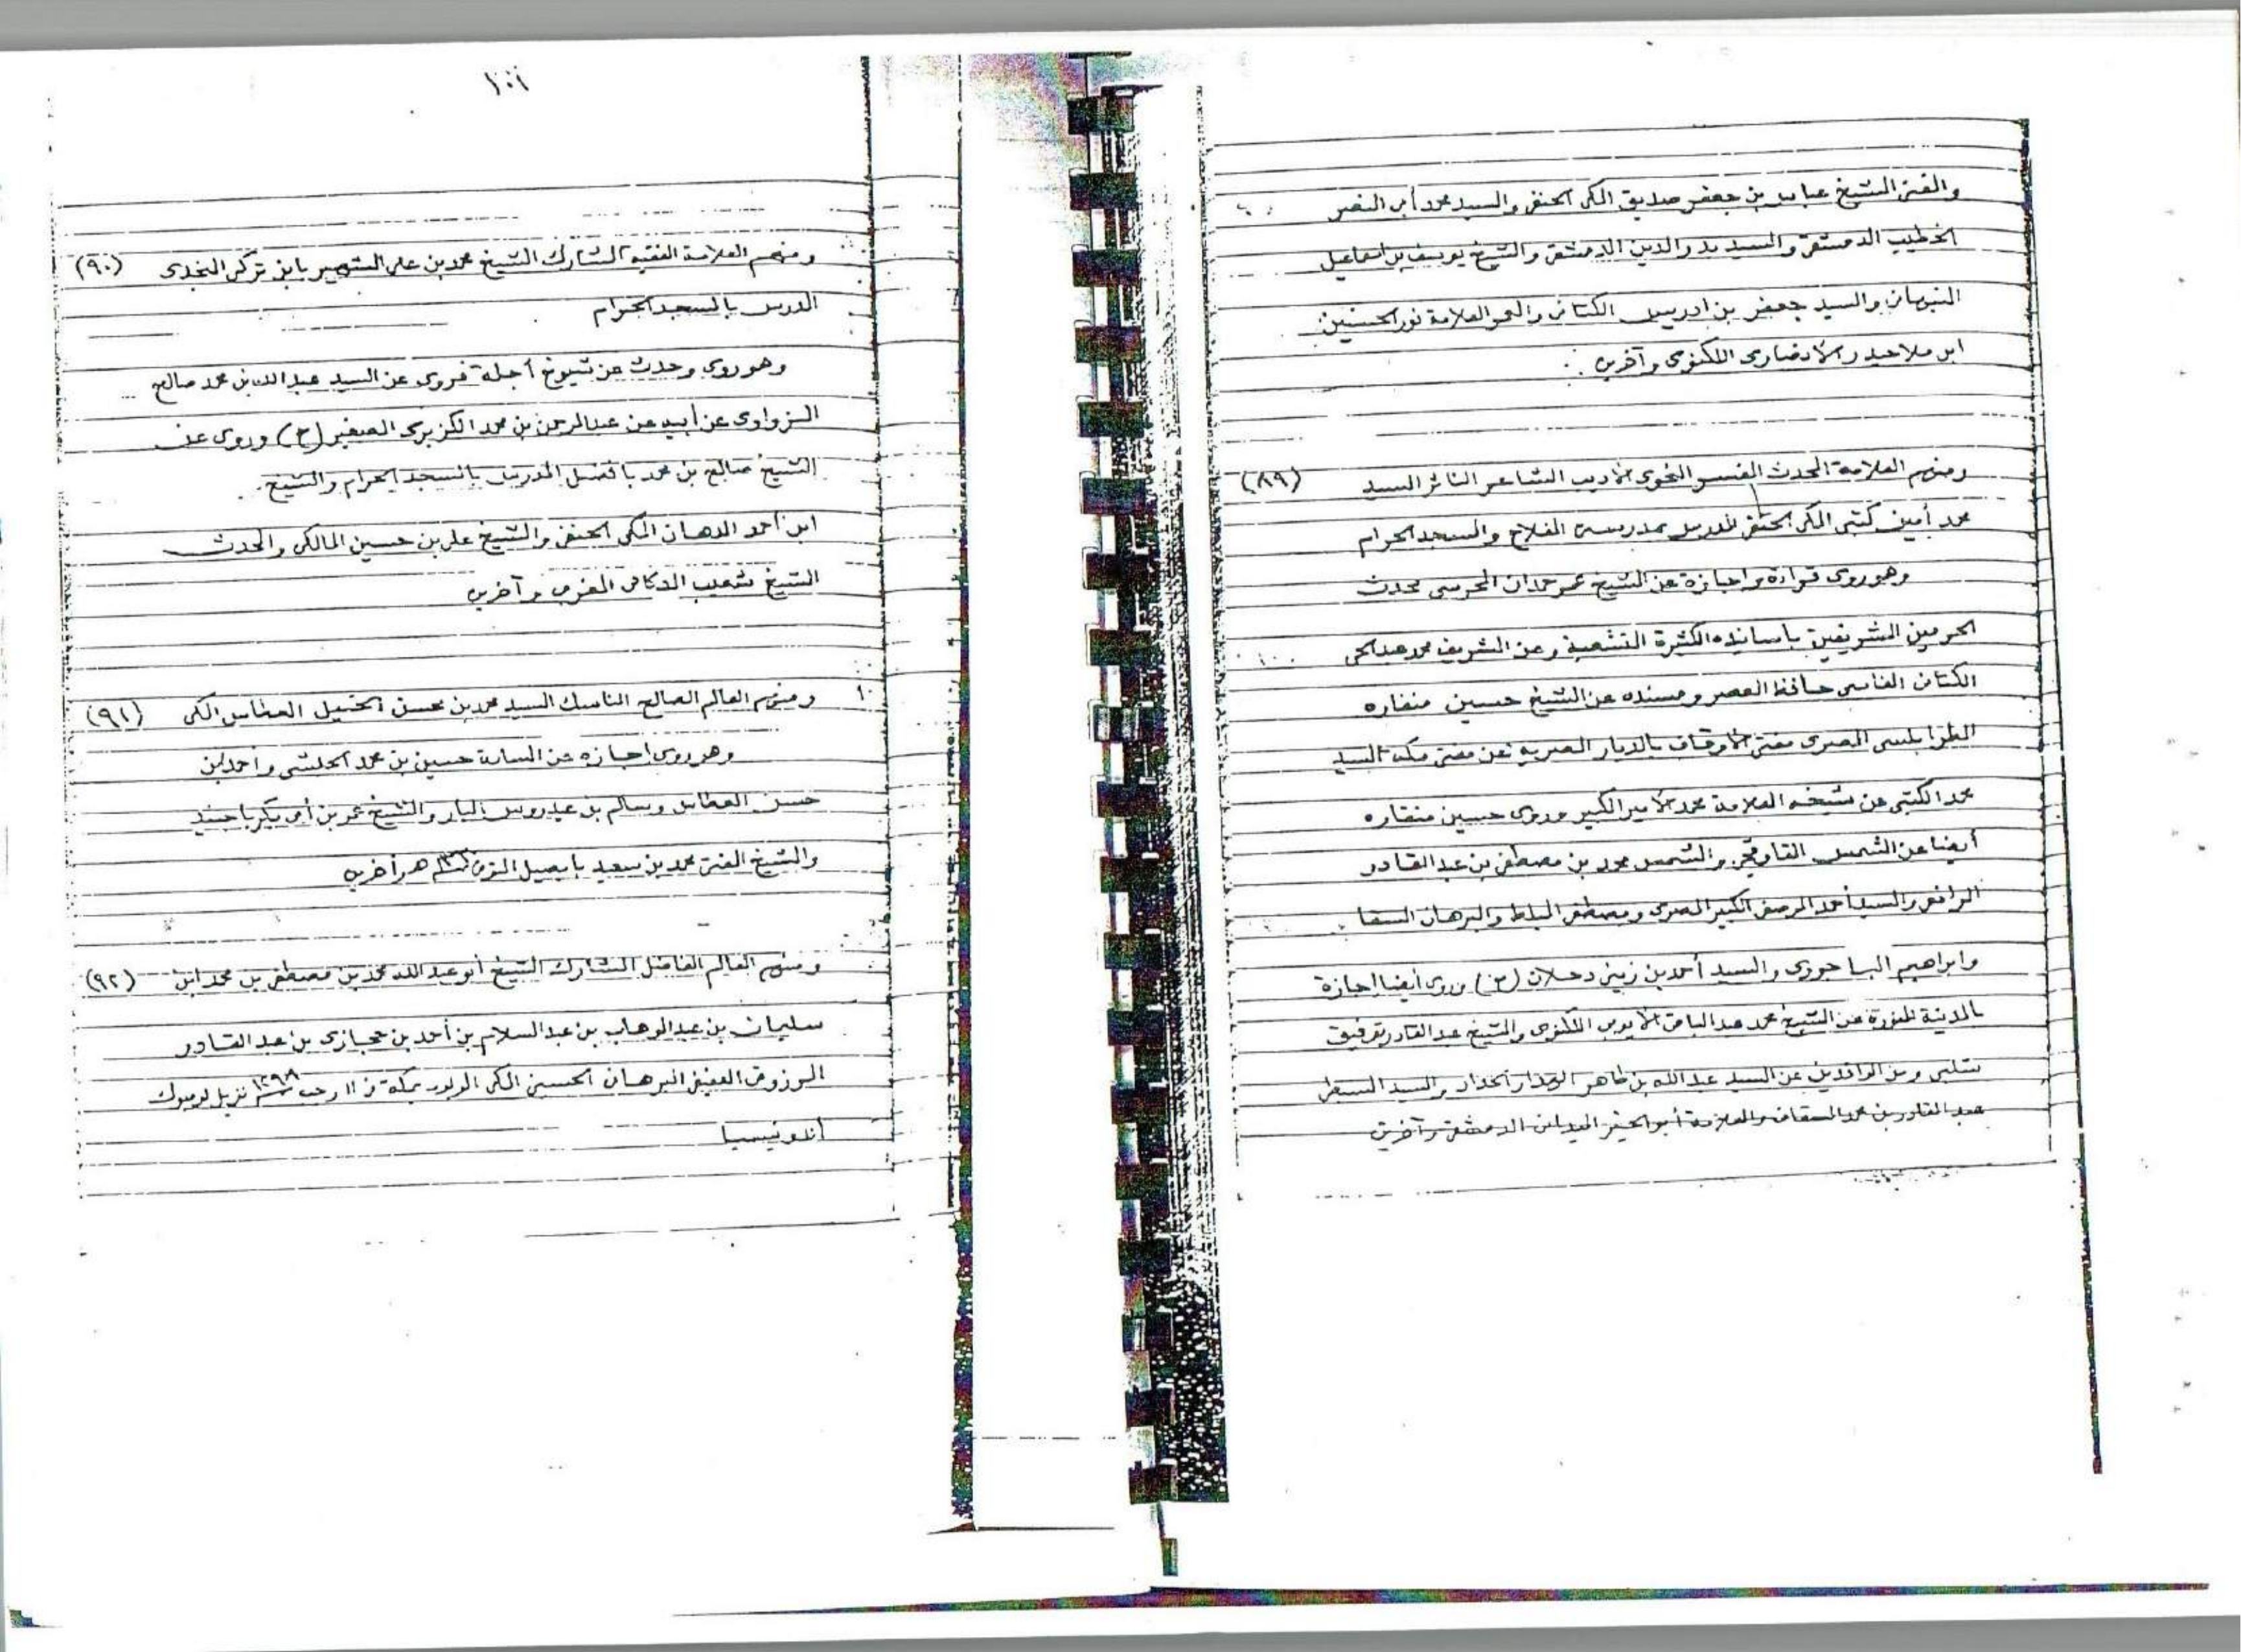 والمفتى الشيخ عباس بن جعفر صديق المكى الحنفى والسيد محمد أبى النصر
الخطيب الدمشقى والسيد بدر الدين الدمشقى والشيخ يوسف بن اسماعيل
النبهانى والسيد جعفر بن ادريس الكتانى والعلامة نور الحسنين
ابن ملا حيدر الانصارى اللكنوى وآخرين
ومنهم العلامة المحدث المفسر النحوى الاديب الشاعر الناثر السيد (٨٩)
محمد أمين كتبى المكى الحنفى المدرس بمدرسة الفلاح والمسجد الحرام
وهو روى قراءة واجازة عن الشيخ عمر حمدان المحرسى محدث
الحرمين الشريفين باسانيده الكثيرة المتشعبة وعن الشريف محمد عبد الحى
الكتانى الفاسى حافظ العصر ومسنده عن الشيخ حسين منقاره
الطرابلسى المصرى مفتى الاوقاف بالديار المصرية عن مفتى مكة السيد
محمد الكتبى عن شيخه العلامة محمد الامير الكبير وروى حسين منقاره
أيضا عن الشمس القاوقجى والشمس محمود بن مصطفى بن عبد القادر
الرافعى والسيد أحمد المرصفى الكبير المصرى ومصطفى المبلط والبرهان السقا
وابراهيم الباجورى والسيد أحمد بن زينى دحلان (ح) وروى أيضا اجازة
بالمدينة المنورة عن الشيخ محمد عبد الباقى الايوبى اللكنوى والشيخ عبد القادر توفيق
شلبى ومن الوافدين عن السيد عبد الله بن طاهر الهدار الحداد والسيد
عبد القادر بن محمد السقاف والعلامة أبو الخير الميدانى الدمشقى وآخرين
١٠١
ومنهم العلامة الفقيه المشارك الشيخ محمد بن على الشهير بابن تركى النجدى (٩٠)
المدرس بالمسجد الحرام
وهو روى وحدث عن شيوخ أجلة فروى عن السيد عبد الله بن محمد صالح
الزواوى عن أبيه عن عبد الرحمن بن محمد الكزبرى الصغير (ح) وروى عن
الشيخ صالح بن محمد بافضل المدرس بالمسجد الحرام والشيخ
ابن أحمد الدهان المكى الحنفى والشيخ على بن حسين المالكى والمحدث
الشيخ شعيب الدكالى المغربى وآخرين
ومنهم العالم الصالح الناسك السيد محمد بن محسن الخيل العطاس المكى (٩١)
وهو روى اجازة عن السادة حسين بن محمد الحبشى واحمد بن
حسن العطاس وسالم بن عيدروس البار والشيخ عمر بن أبى بكر باجنيد
والشيخ المفتى محمد بن سعيد بابصيل المتوفى سنة ١٣٣٠ هـ وآخرين
ومنهم العالم الفاضل المشارك الشيخ أبو عبد الله محمد بن مصطفى بن محمد ابن (٩٢)
سليمان بن عبد الوهاب بن عبد السلام بن أحمد بن حجازى بن عبد القادر
المرزوقى العفيفى البرهان الحسينى المكى المولود بمكة فى ١١ رجب سنة ١٢٩٨ نزيل لومبوك
أندونيسيا